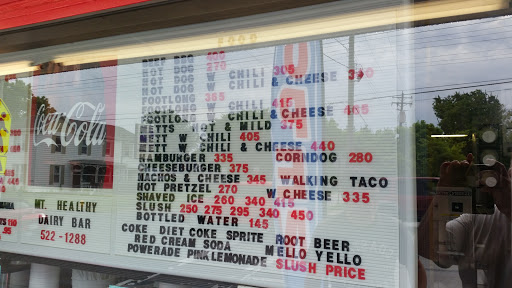 FOOD
BEEF BBQ 405
HOT DOG 270
HOT DOG W CHILI 305
HOT DOG W CHILI & CHEESE
FOOTLONG 365
FOOTLONG W CHILI 415
FOOTLONG W CHILI & CHEESE
METTS HOT & MILD 375
METT W CHILI 405
METT W CHILI & CHEESE 440
HAMBURGER 335 CORNDOG 280
CHEESEBURGER 375
NACHOS & CHEESE 345 WALKING TACO
HOT PRETZEL 270 W CHEESE 335
SHAVED ICE 260 340 410
SLUSH 250 275 295 345 450
BOTTLED WATER 145
COKE DIET COKE SPRITE ROOT BEER
RED CREAM SODA MELLO YELLO
POWERADE PINK LEMONADE SLUSH PRICE
Coca-Cola
MT. HEALTHY
DAIRY BAR
522-1288